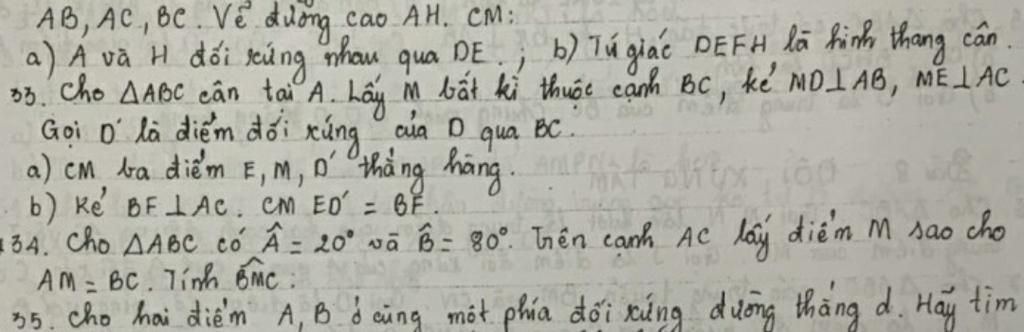 AB, AC, BC. Vẽ đường cao AH. CM:
a) A và H đối xứng nhau qua DE.; b) Tứ giác DEFH là hình thang cân.
33. Cho ΔABC cân tại A. Lấy M bất kì thuộc cạnh BC, kẻ MD⊥AB, ME⊥AC.
Gọi D' là điểm đối xứng của D qua BC.
a) CM ba điểm E, M, D' thẳng hàng.
b) Kẻ BF⊥AC. CM ED' = BF.
34. Cho ΔABC có Â = 20° và B̂ = 80°. Trên cạnh AC lấy điểm M sao cho
AM = BC. Tính BM̂C.
35. Cho hai điểm A, B ở cùng một phía đối xứng đường thẳng d. Hãy tìm